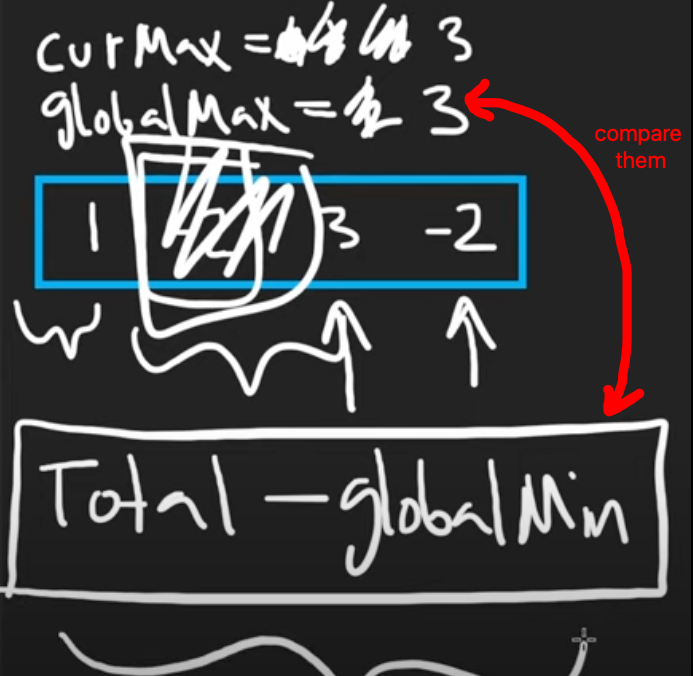 curMax = 3
globalMax = 3
compare
them
1 3 -2
Total - globalMin